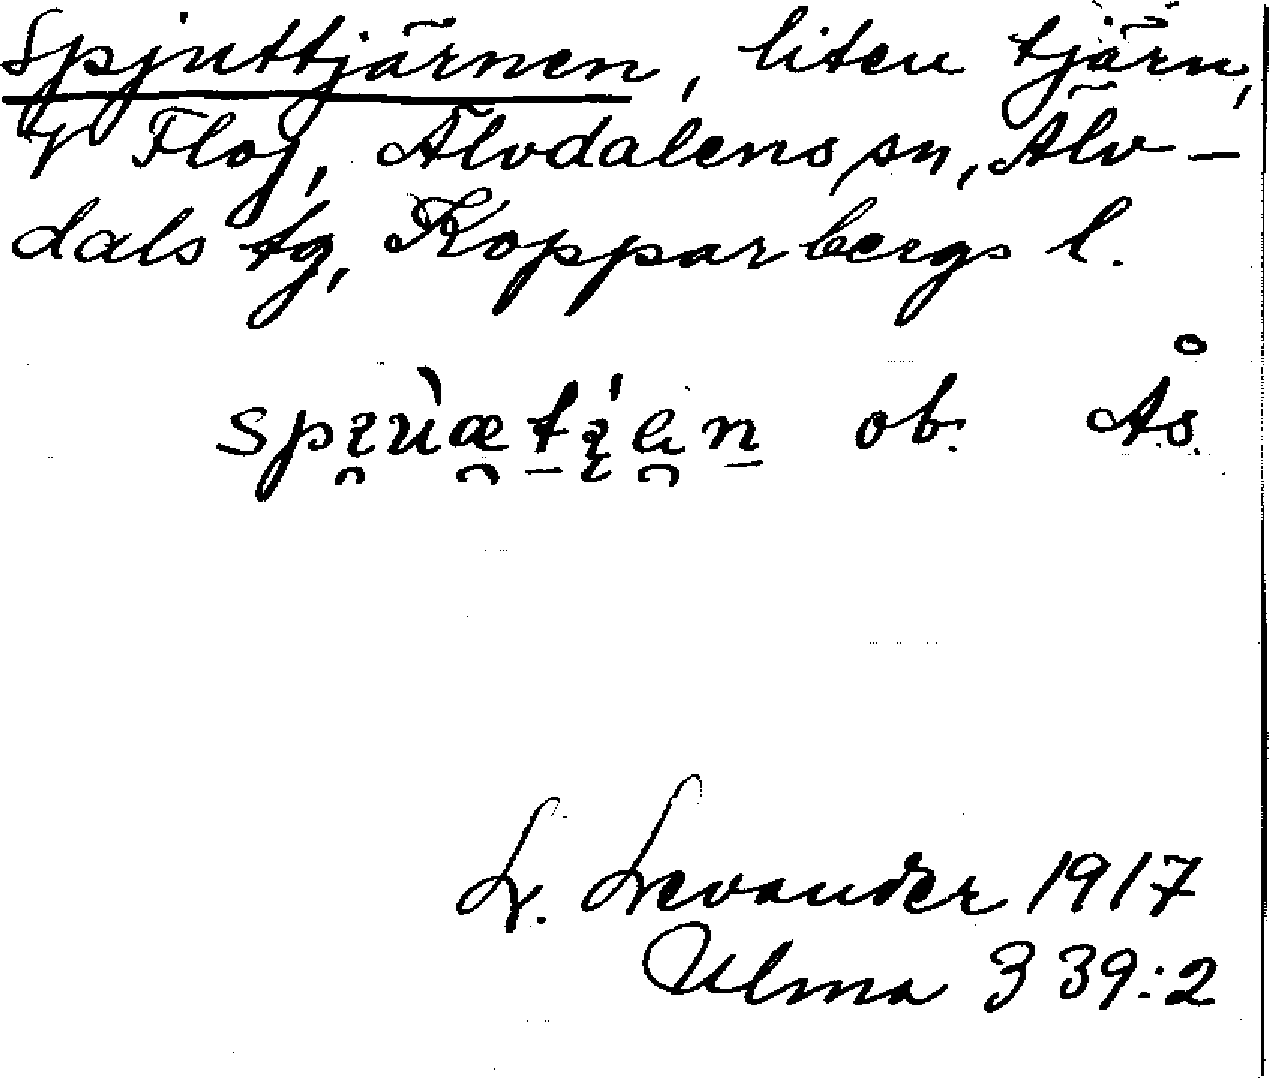 Spjuttjärnen, liten tjärn,
Y Floj, Älvdalens sn, Älv-
dals tg, Kopparbergs l.
ob. Ås.
L. Levander 1917
Ulma 339:2